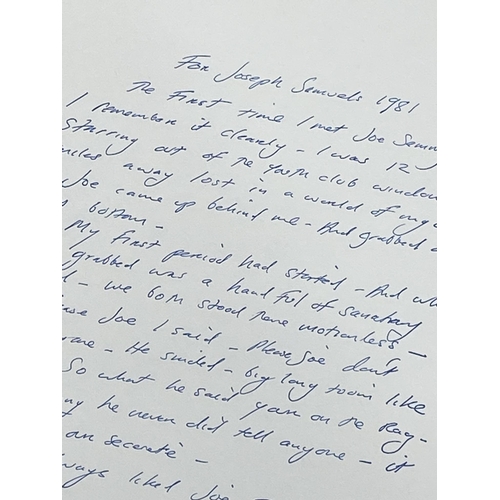 For Joseph Samuels 1981
The First time I met Joe Sam
I remember it clearly - I was 12
Starring out of the youth club window
miles away lost in a world of my
Joe came up behind me - And grabbed
bottom -
My first period had started - And
grabbed was a hand ful of sanatary
- we both stood there motionless -
Joe I said - Please joe don't
- He smiled - big long tooth like
So what he said your on the Rag -
he never did tell anyone - it
our secerate -
liked Joe